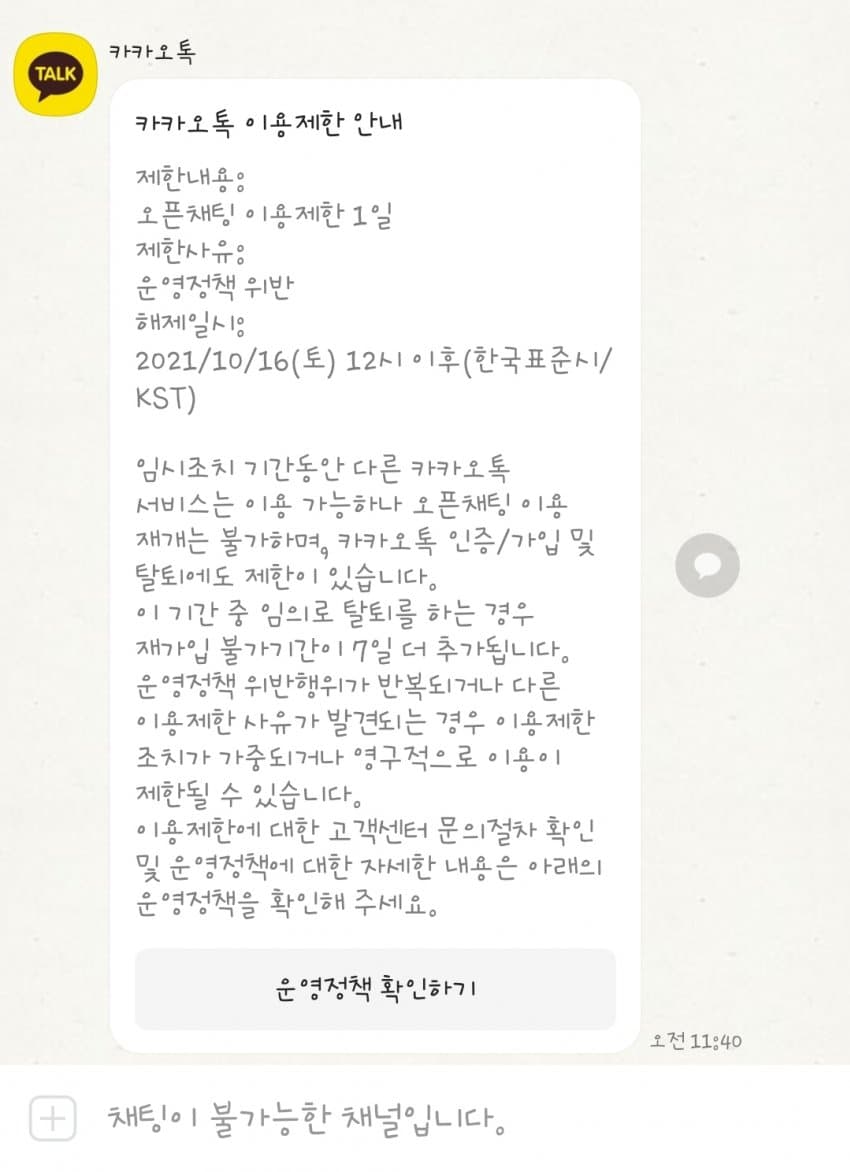 TALK
카카오톡
카카오톡 이용제한 안내
제한내용:
오픈채팅 이용제한 1일
제한사유:
운영정책 위반
해제일시:
2021/10/16(토) 12시 이후(한국표준시/
KST)
임시조치 기간동안 다른 카카오톡
서비스는 이용 가능하나 오픈채팅 이용
재개는 불가하며, 카카오톡 인증/가입 및
탈퇴에도 제한이 있습니다.
이 기간 중 임의로 탈퇴를 하는 경우
재가입 불가기간이 7일 더 추가됩니다.
운영정책 위반행위가 반복되거나 다른
이용제한 사유가 발견되는 경우 이용제한
조치가 가중되거나 영구적으로 이용이
제한될 수 있습니다.
이용제한에 대한 고객센터 문의절차 확인
및 운영정책에 대한 자세한 내용은 아래의
운영정책을 확인해 주세요.
운영정책 확인하기
오전 11:40
채팅이 불가능한 채널입니다.